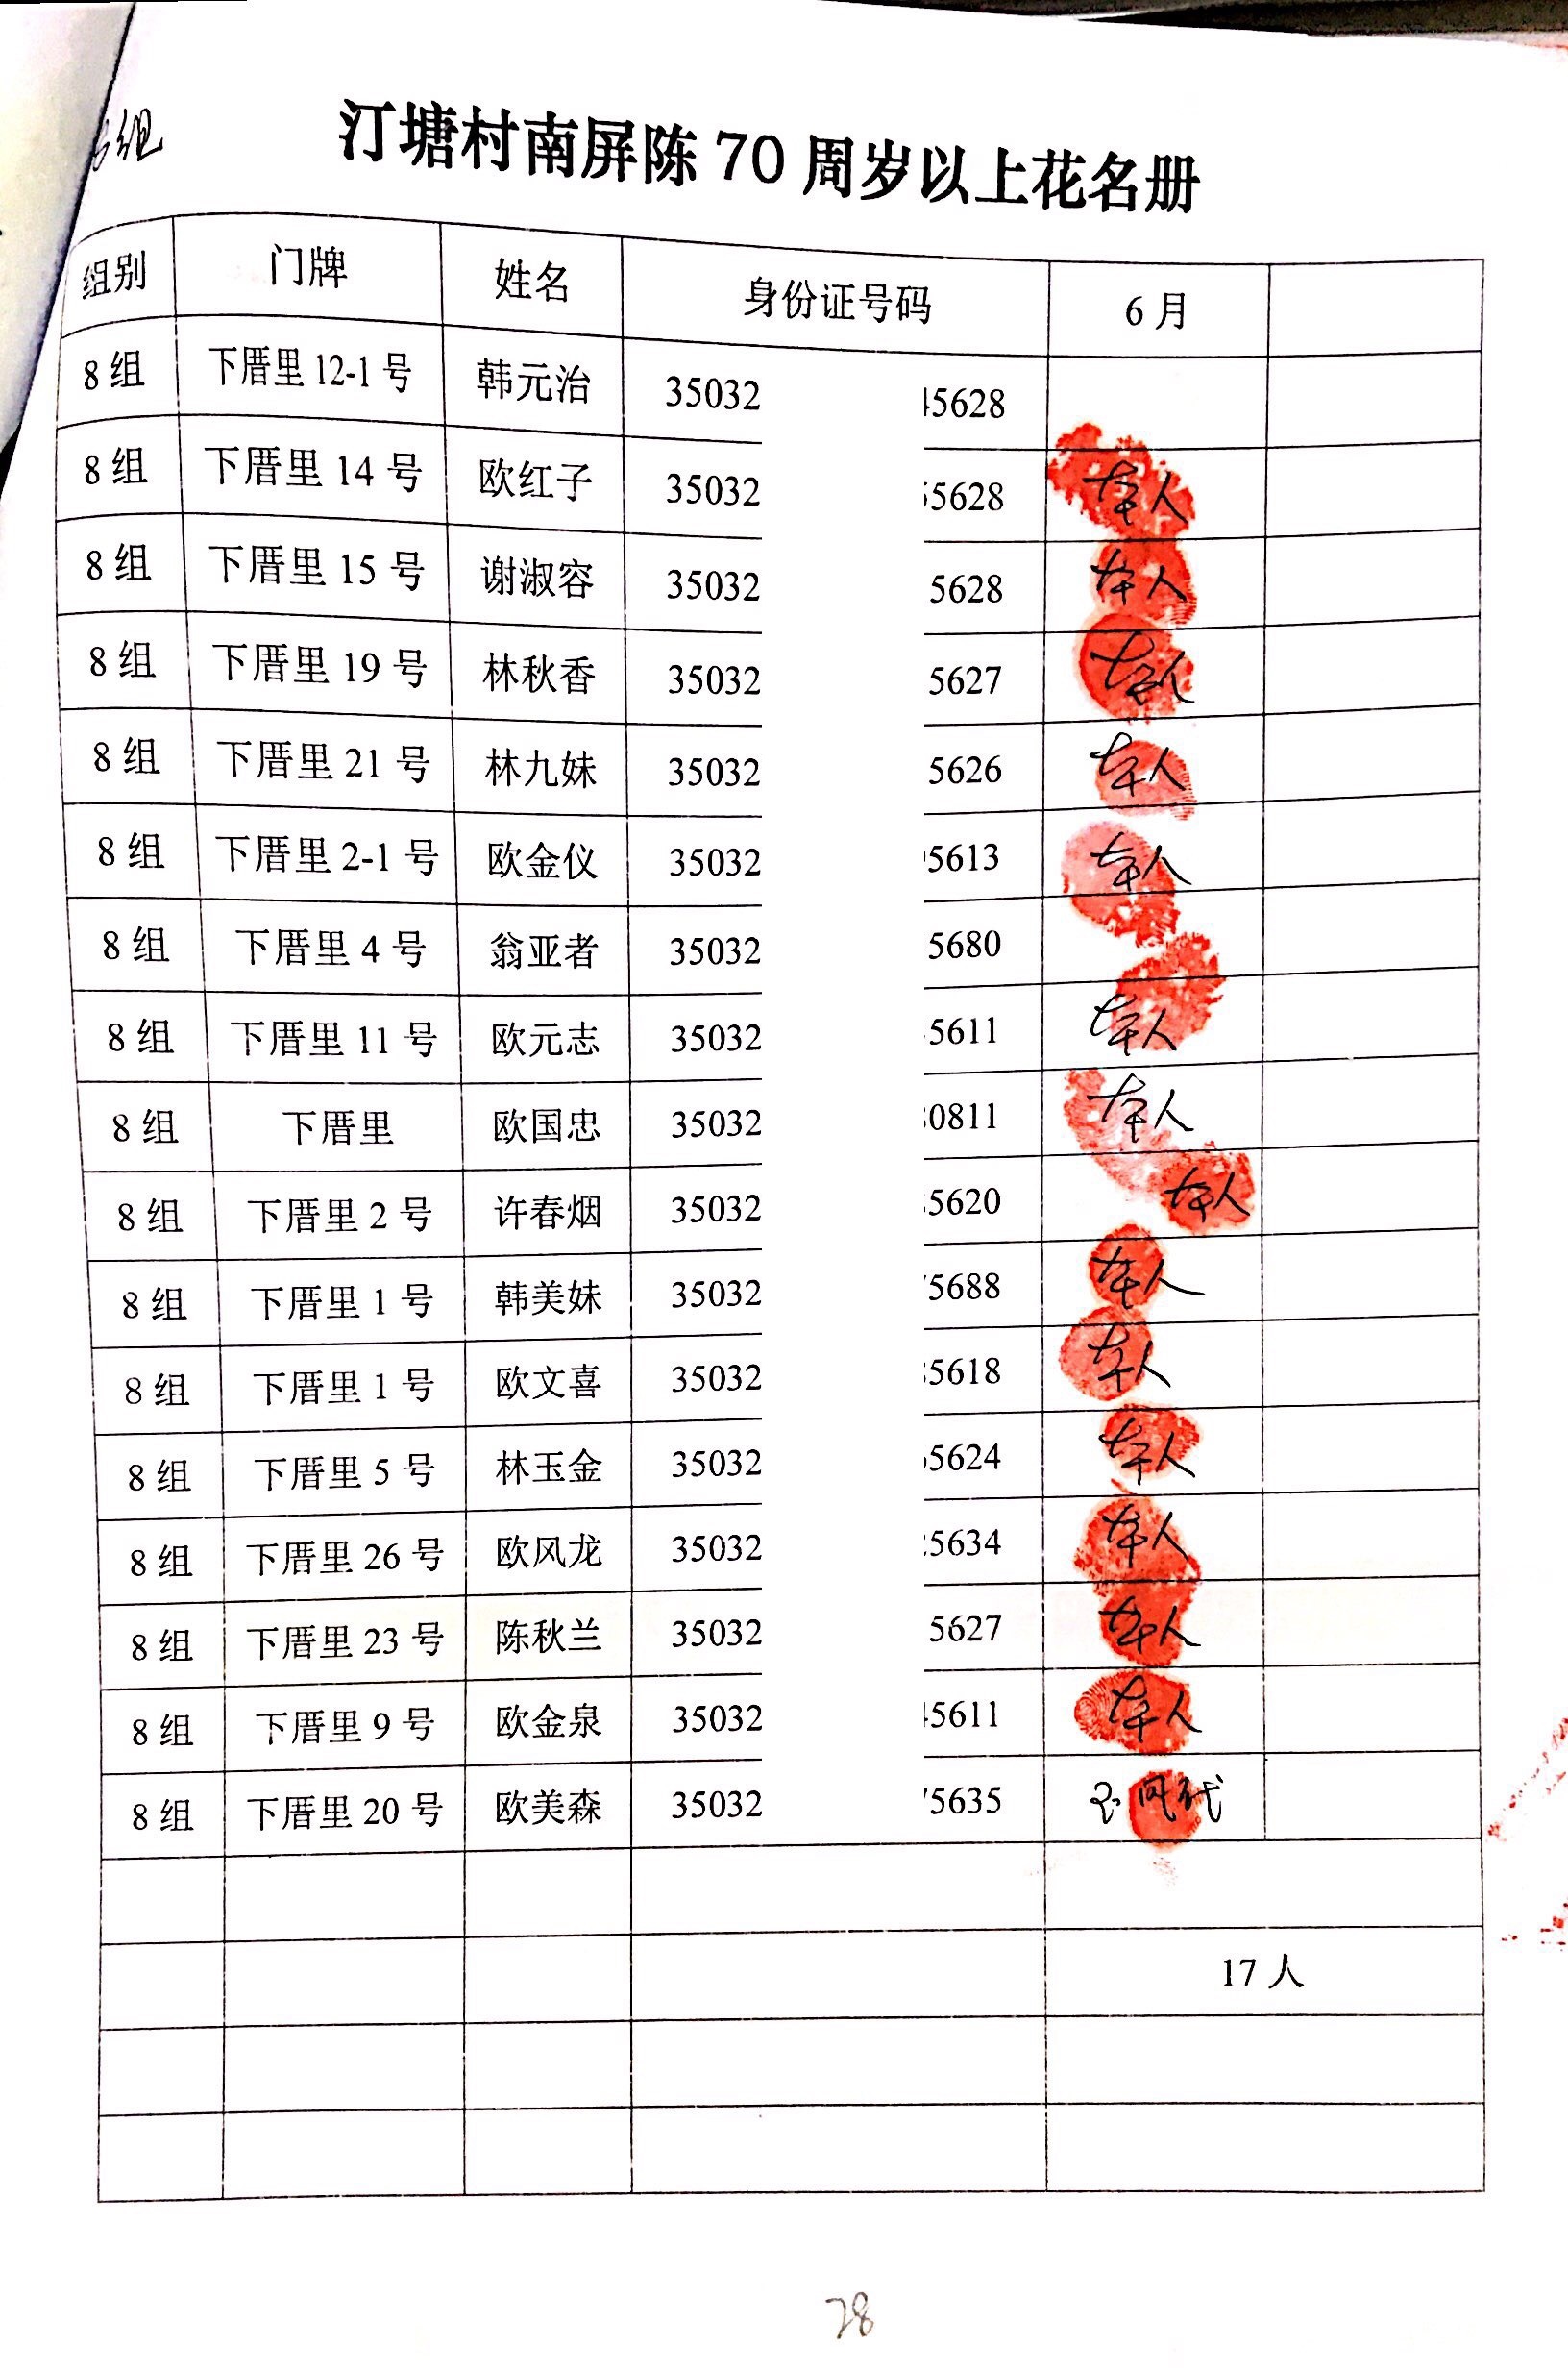 组
汀塘村南屏陈 70 周岁以上花名册
组别 门牌 姓名 身份证号码 6 月
8 组 下厝里 12-1 号 韩元治 35032 5628
8 组 下厝里 14 号 欧红子 35032 5628 本人
8 组 下厝里 15 号 谢淑容 35032 5628 本人
8 组 下厝里 19 号 林秋香 35032 5627 本人
8 组 下厝里 21 号 林九妹 35032 5626 本人
8 组 下厝里 2-1 号 欧金仪 35032 5613 本人
8 组 下厝里 4 号 翁亚者 35032 5680
8 组 下厝里 11 号 欧元志 35032 5611 本人
8 组 下厝里 欧国忠 35032 0811 本人
8 组 下厝里 2 号 许春烟 35032 5620 本人
8 组 下厝里 1 号 韩美妹 35032 5688 本人
8 组 下厝里 1 号 欧文喜 35032 5618 本人
8 组 下厝里 5 号 林玉金 35032 5624 本人
8 组 下厝里 26 号 欧风龙 35032 5634 本人
8 组 下厝里 23 号 陈秋兰 35032 5627 本人
8 组 下厝里 9 号 欧金泉 35032 5611 本人
8 组 下厝里 20 号 欧美森 35032 5635
17 人
28